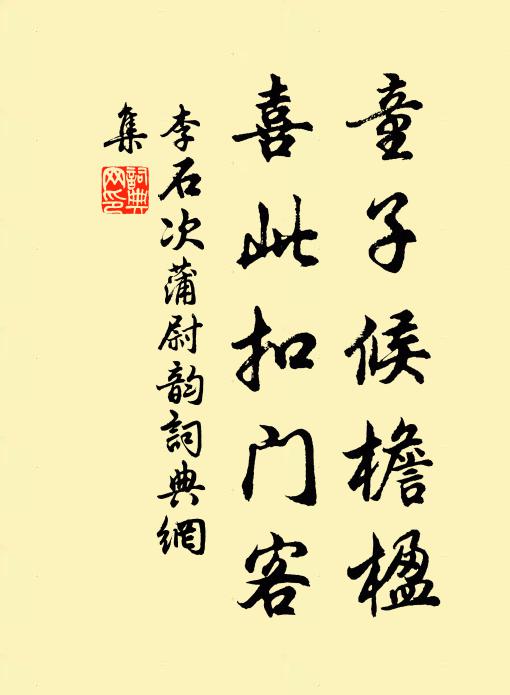 童子候檐楹
喜此扣门客
李石次蒲尉韵詞典網
集
詞典
网印